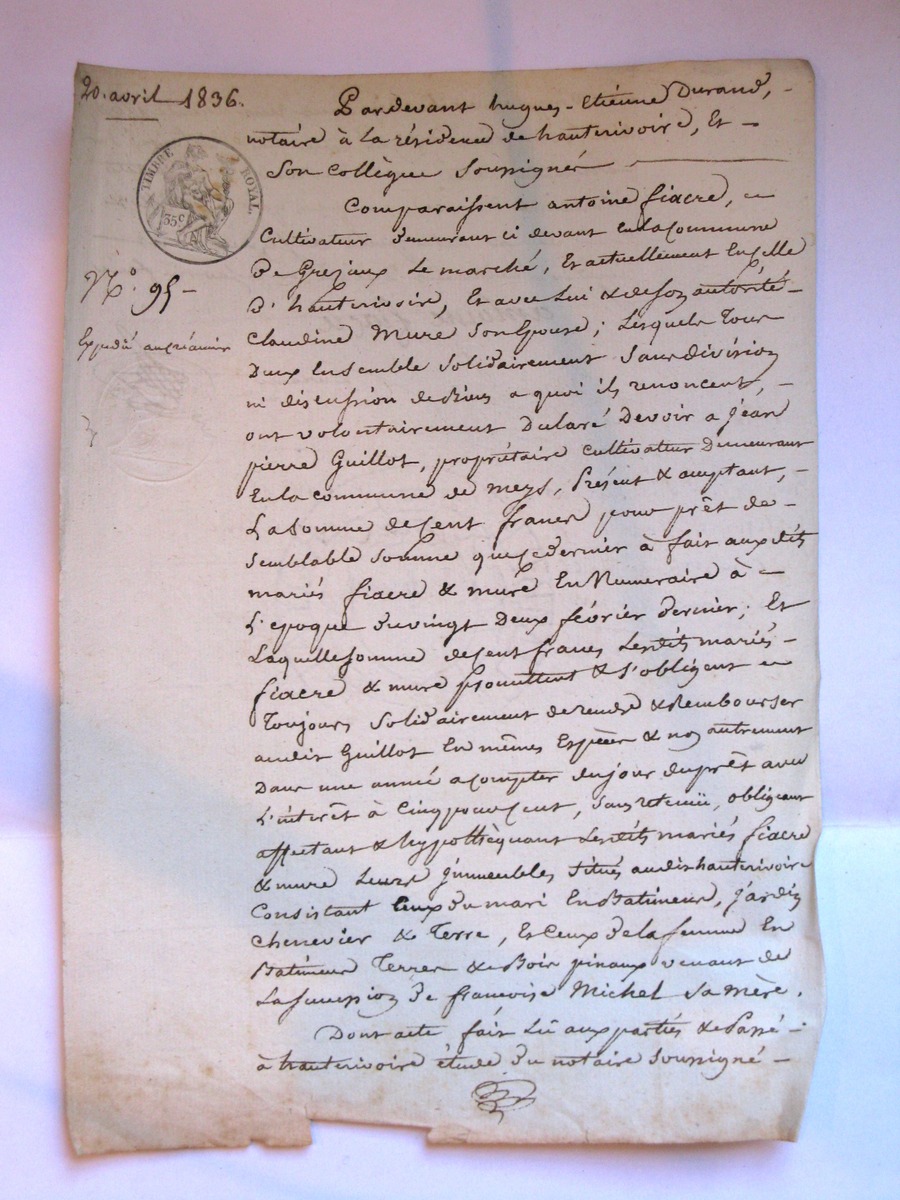 20. avril 1836.
Pardevant hugues-Etienne Durand,
notaire à la résidence de hauterivoire, Et
Son collègue Soussigné
TIMBRE ROYAL
35c
Comparaissent antoine fiacre,
Cultivateur demeurant ci devant En la Commune
De Grejeux Le marché, Et actuellement En celle
D'hauterivoire, Et avec Lui & de son autorité
No. 95
Claudine Mure Son Epouse ; Lesquels Tous
Expédié au créancier
Deux Ensemble Solidairement Sans division
ni discussion de Biens a quoi ils renoncent,
ont volontairement Déclaré Devoir a jean
pierre Guillot, propriétaire Cultivateur Demeurant
En la commune de meys, Présent & acceptant,
La Somme de Cent francs pour prêt de
Semblable Somme que ce dernier à fait aux dits
mariés fiacre & mure En Numeraire à
L'epoque du vingt Deux février dernier ; Et
Laquelle Somme de Cent francs Lesdits mariés
fiacre & mure promettent & S'obligent
Toujours Solidairement de rendre & Rembourser
audit Guillot En mêmes Espèces & non autrement
Dans une année a compter du jour du prêt avec
L'intérêt à Cinq pour Cent, Sans retenüe, obligeant
affectant & hypothèquant Lesdits mariés fiacre
& mure Leurs jmmeubles Situés audit hauterivoire
Consistant Ceux du mari En Batiment, jardin
Chenevier & Terre, Et Ceux de la femme En
Batiment Terres & Bois pinaux venant de
La Succession de francoise Michel Sa Mère.
Dont acte fait Lû aux parties & Passé
à hauterivoire étude du notaire Soussigné